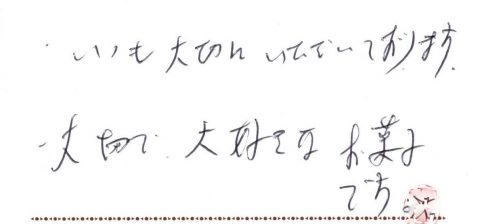 いつも大切にいただいております。
大切で、大好きな お菓子
です